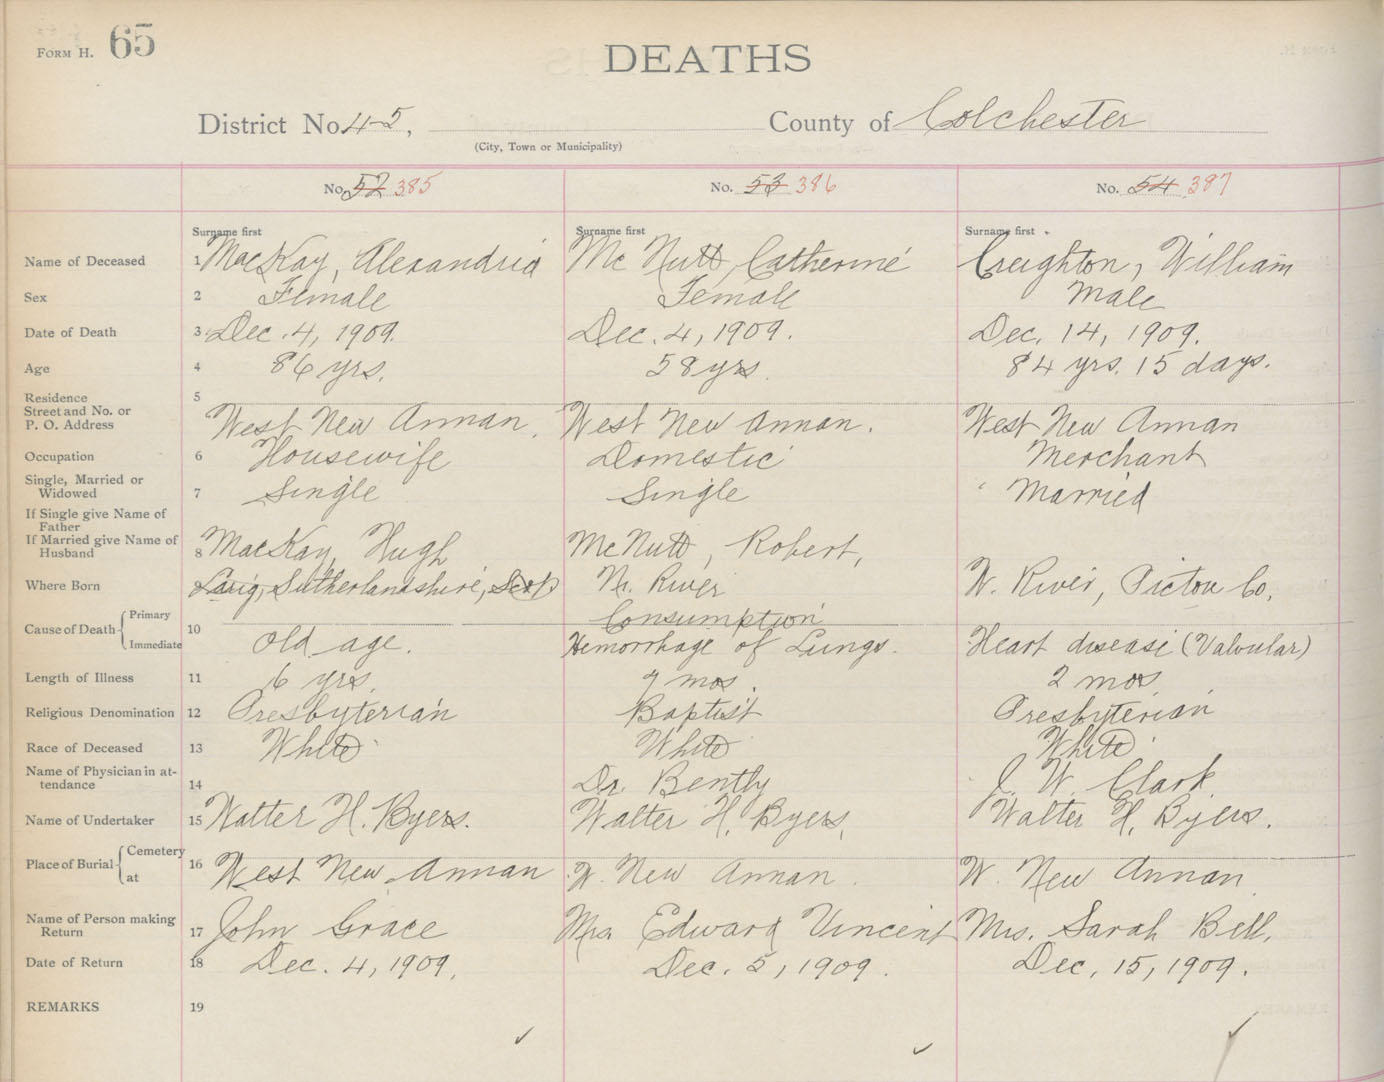 FORM H. 65
DEATHS
District No. 45, County of Colchester
(City, Town or Municipality)
No. 52 385 No. 53 386 No. 54 387
Surname first Surname first Surname first
Name of Deceased 1 MacKay, Alexandria McNutt, Catherine Creighton, William
Sex 2 Female Female Male
Date of Death 3 Dec. 4, 1909. Dec. 4, 1909. Dec. 14, 1909.
Age 4 86 yrs. 58 yrs. 84 yrs. 15 days.
Residence 5
Street and No. or
P. O. Address West New Annan. West New Annan. West New Annan
Occupation 6 Housewife Domestic Merchant
Single, Married or
Widowed 7 Single Single Married
If Single give Name of
Father
If Married give Name of
Husband 8 MacKay, Hugh McNutt, Robert,
Where Born 9 Sutherlandshire, Scot N. River W. River, Pictou Co.
Cause of Death { Primary Consumption
Immediate 10 old age. Hemorrhage of Lungs. Heart disease (Valvular)
Length of Illness 11 6 yrs. 7 mos. 2 mos.
Religious Denomination 12 Presbyterian Baptist Presbyterian
Race of Deceased 13 White White White
Name of Physician in at-
tendance 14 Dr. Bently J. W. Clark
Name of Undertaker 15 Walter H. Byers. Walter H. Byers. Walter H. Byers.
Place of Burial { Cemetery
at 16 West New Annan W. New Annan. W. New Annan
Name of Person making
Return 17 John Grace Mrs Edward Vincent Mrs. Sarah Bell.
Date of Return 18 Dec. 4, 1909. Dec. 5, 1909. Dec. 15, 1909.
REMARKS 19